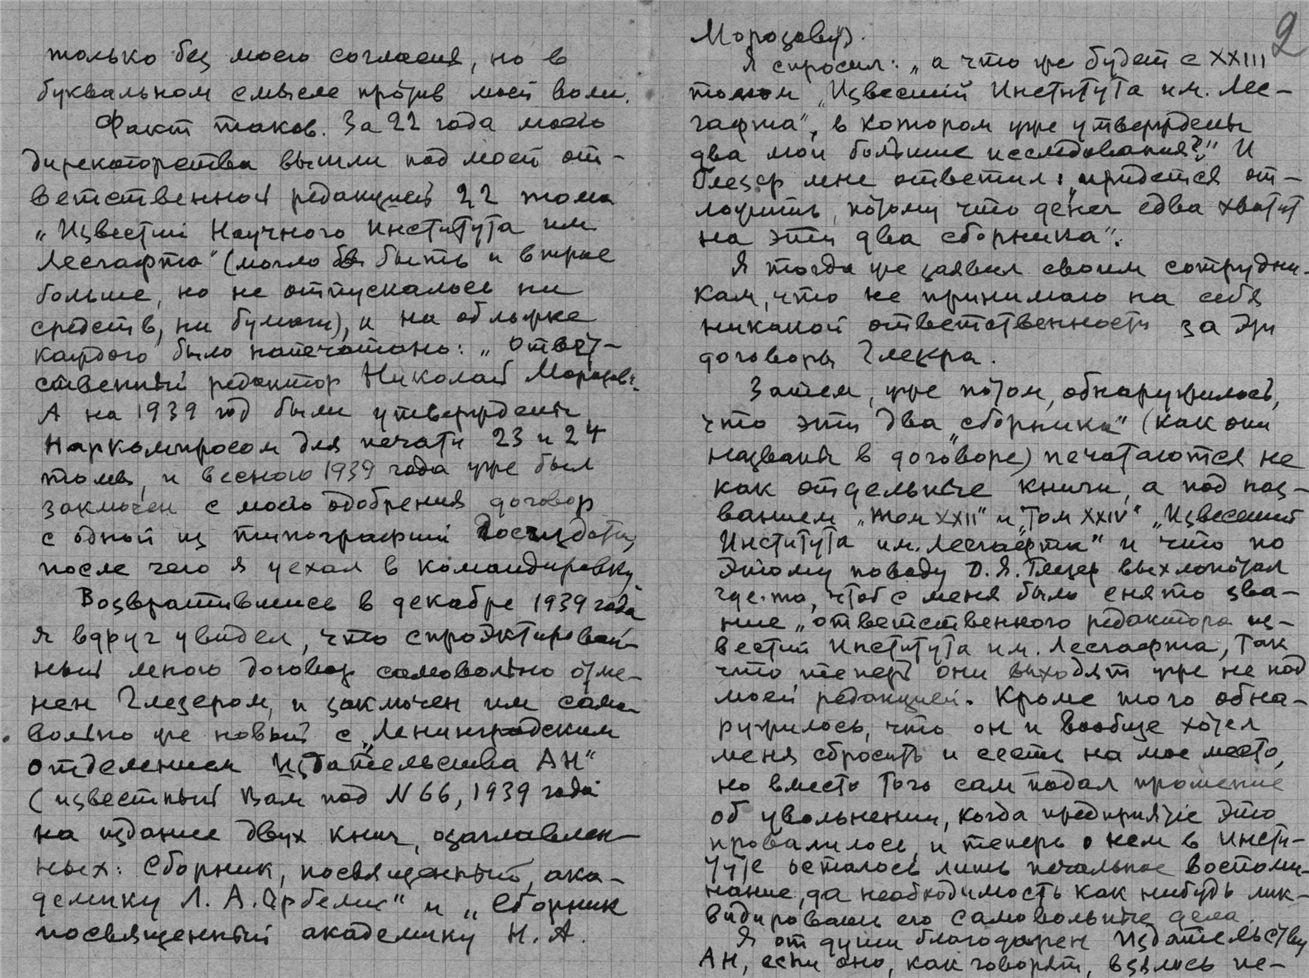 только без моего согласия, но в
буквальном смысле против моей воли.
Факт таков. За 22 года моего
директорства вышли под моей от-
ветственной редакцией 22 тома
„Известий Научного Института им
Лесгафта" (могло бы быть и втрое
больше, но не отпускалось ни
средств, ни бумаги), и на обложке
каждого было напечатано: „Ответ-
ственный редактор Николай Морозов".
А на 1939 год были утверждены
Наркомпросом для печати 23 и 24
томы, и весною 1939 года уже был
заключен с моего одобрения договор
с одной из типографий Госиздата,
после чего я уехал в командировку.
Возвратившись в декабре 1939 года
я вдруг увидел, что спроэктирован-
ный мною договор самовольно отме-
нен Глезером, и заключен им само-
вольно же новый с „Ленинградским
отделением Издательства АН"
(известный Вам под N 66, 1939 года
на издание двух книг, озаглавлен-
ных: Сборник, посвященный ака-
демику Л. А. Орбели" и „Сборник
посвященный академику Н. А.
2
Морозову).
Я спросил: „а что же будет с XXIII
томом „Известий Института им. Лес-
гафта", в котором уже утверждены
два мои большие исследования?" И
Глезер мне ответил: „придется от-
ложить, потому что денег едва хватит
на эти два сборника".
Я тогда же заявил своим сотрудни-
кам, что не принимаю на себя
никакой ответственности за эти
договоры Глезера.
Затем, уже потом, обнаружилось,
что эти два „сборника" (как они
названы в договоре) печатаются не
как отдельные книги, а под наз-
ванием „том XXII" и „том XXIV" „Известий
Института им. Лесгафта" и что по
этому поводу Д. Я. Глезер выхлопотал
где-то, чтоб с меня было снято зва-
ние „ответственного редактора из-
вестий Института им. Лесгафта, так
что теперь они выходят уже не под
моей редакцией. Кроме того обна-
ружилось, что он и вообще хотел
меня сбросить и сесть на мое место,
но вместо того сам подал прошение
об увольнении, когда предприятие это
провалилось, и теперь о нем в Инсти-
туте осталось лишь печальное воспоми-
нание, да необходимость как нибудь лик-
видировать его самовольные дела.
Я от души благодарен Издательству
АН, если оно, как говорят, взялось не-